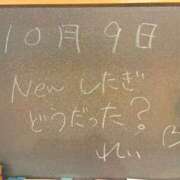 10月9日
Newしたぎ
どうだった?
れい